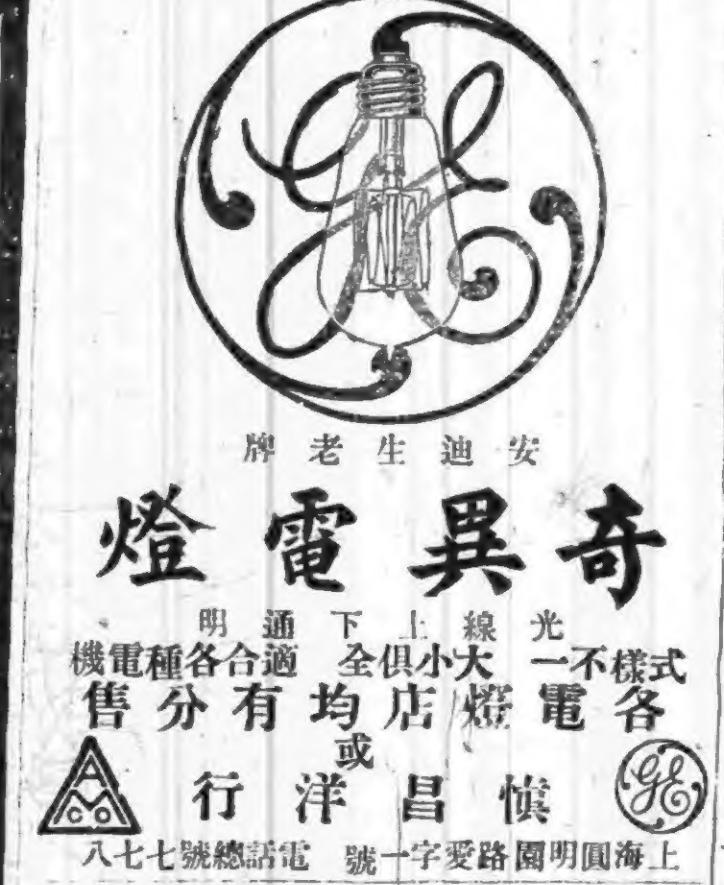 GE
安迪生老牌
奇異電燈
光線上下通明
式樣不一 大小俱全 適合各種電機
各電燈店均有分售
或
慎昌洋行
AM&Co
GE
上海圓明園路愛字一號 電話總號七七八